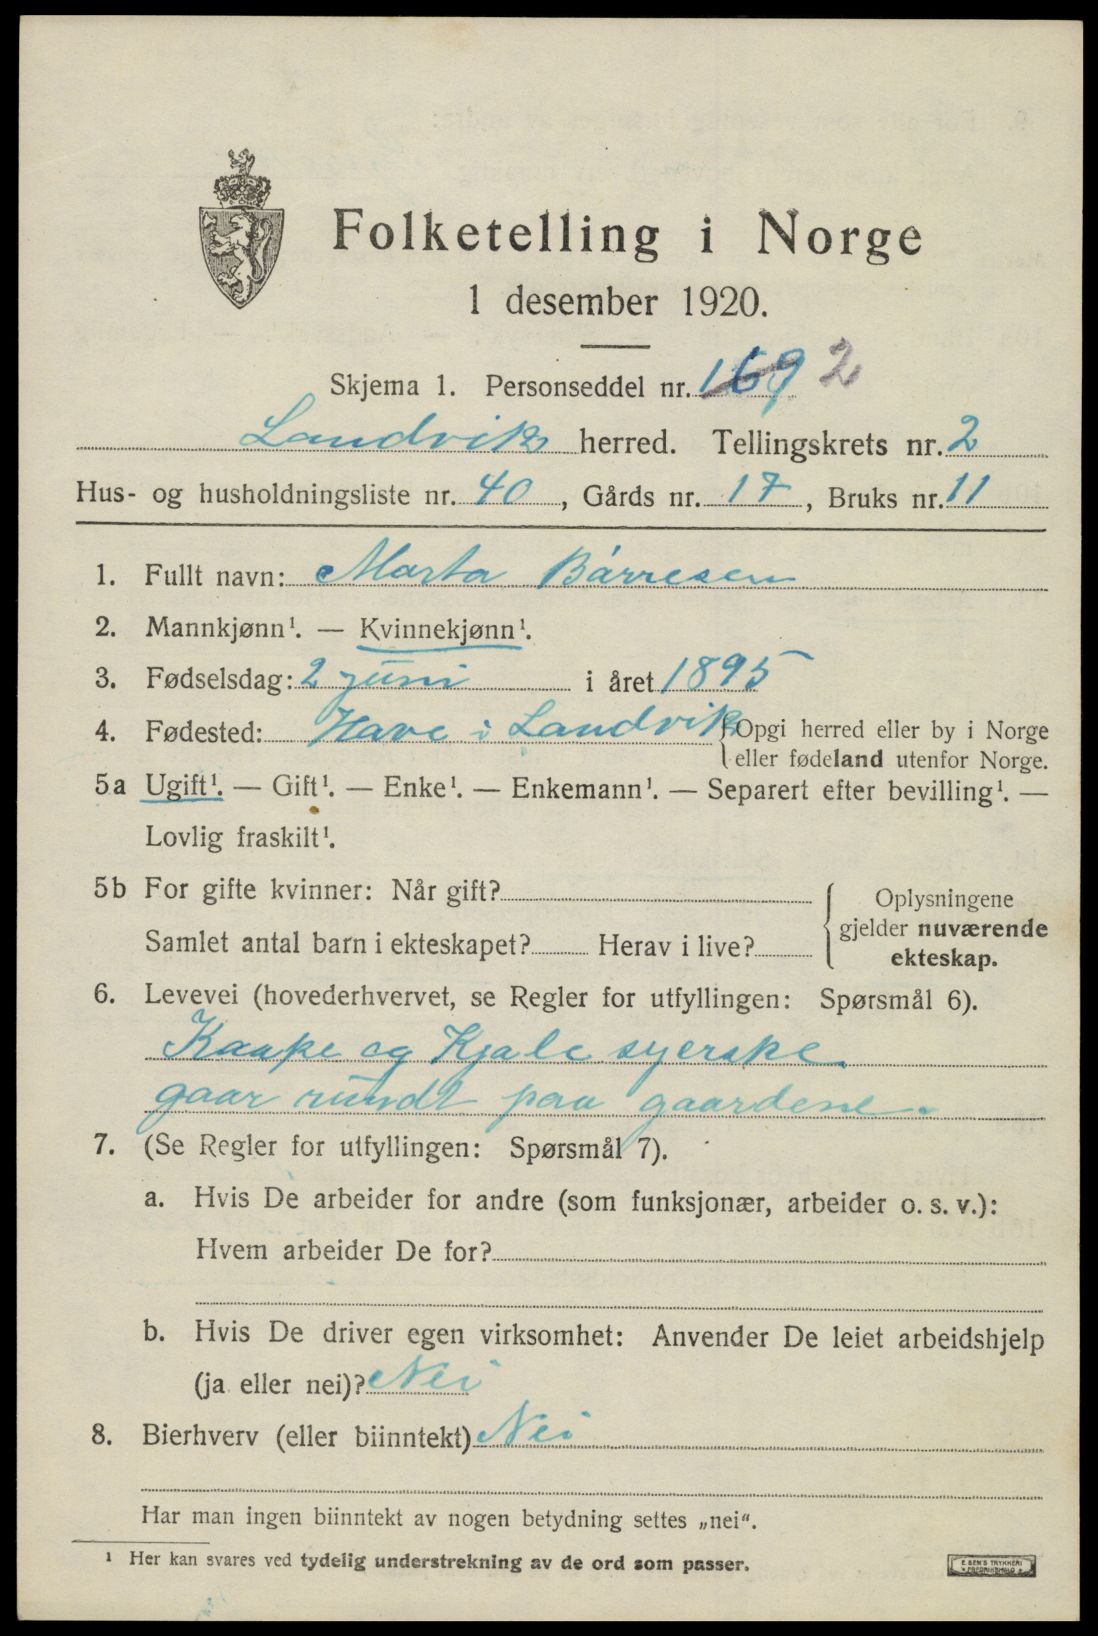 Folketelling i Norge
1 desember 1920.
Skjema 1. Personseddel nr. 169 2
Landvik herred. Tellingskrets nr. 2
Hus- og husholdningsliste nr. 40, Gårds nr. 17, Bruks nr. 11
1. Fullt navn: Marta Bárresen
2. Mannkjønn¹. — Kvinnekjønn¹.
3. Fødselsdag: 2 juni i året 1895
4. Fødested: Have i Landvik {Opgi herred eller by i Norge
eller fødeland utenfor Norge.
5a Ugift¹. — Gift¹. — Enke¹. — Enkemann¹. — Separert efter bevilling¹. —
Lovlig fraskilt¹.
5b For gifte kvinner: Når gift?
Samlet antal barn i ekteskapet? Herav i live?
{Oplysningene
gjelder nuværende
ekteskap.
6. Levevei (hovederhvervet, se Regler for utfyllingen: Spørsmål 6).
Kaape og Kjole syerske
gaar rundt paa gaardene.
7. (Se Regler for utfyllingen: Spørsmål 7).
a. Hvis De arbeider for andre (som funksjonær, arbeider o. s. v.):
Hvem arbeider De for?
b. Hvis De driver egen virksomhet: Anvender De leiet arbeidshjelp
(ja eller nei)? Nei
8. Bierhverv (eller biinntekt) Nei
Har man ingen biinntekt av nogen betydning settes „nei“.
¹ Her kan svares ved tydelig understrekning av de ord som passer.